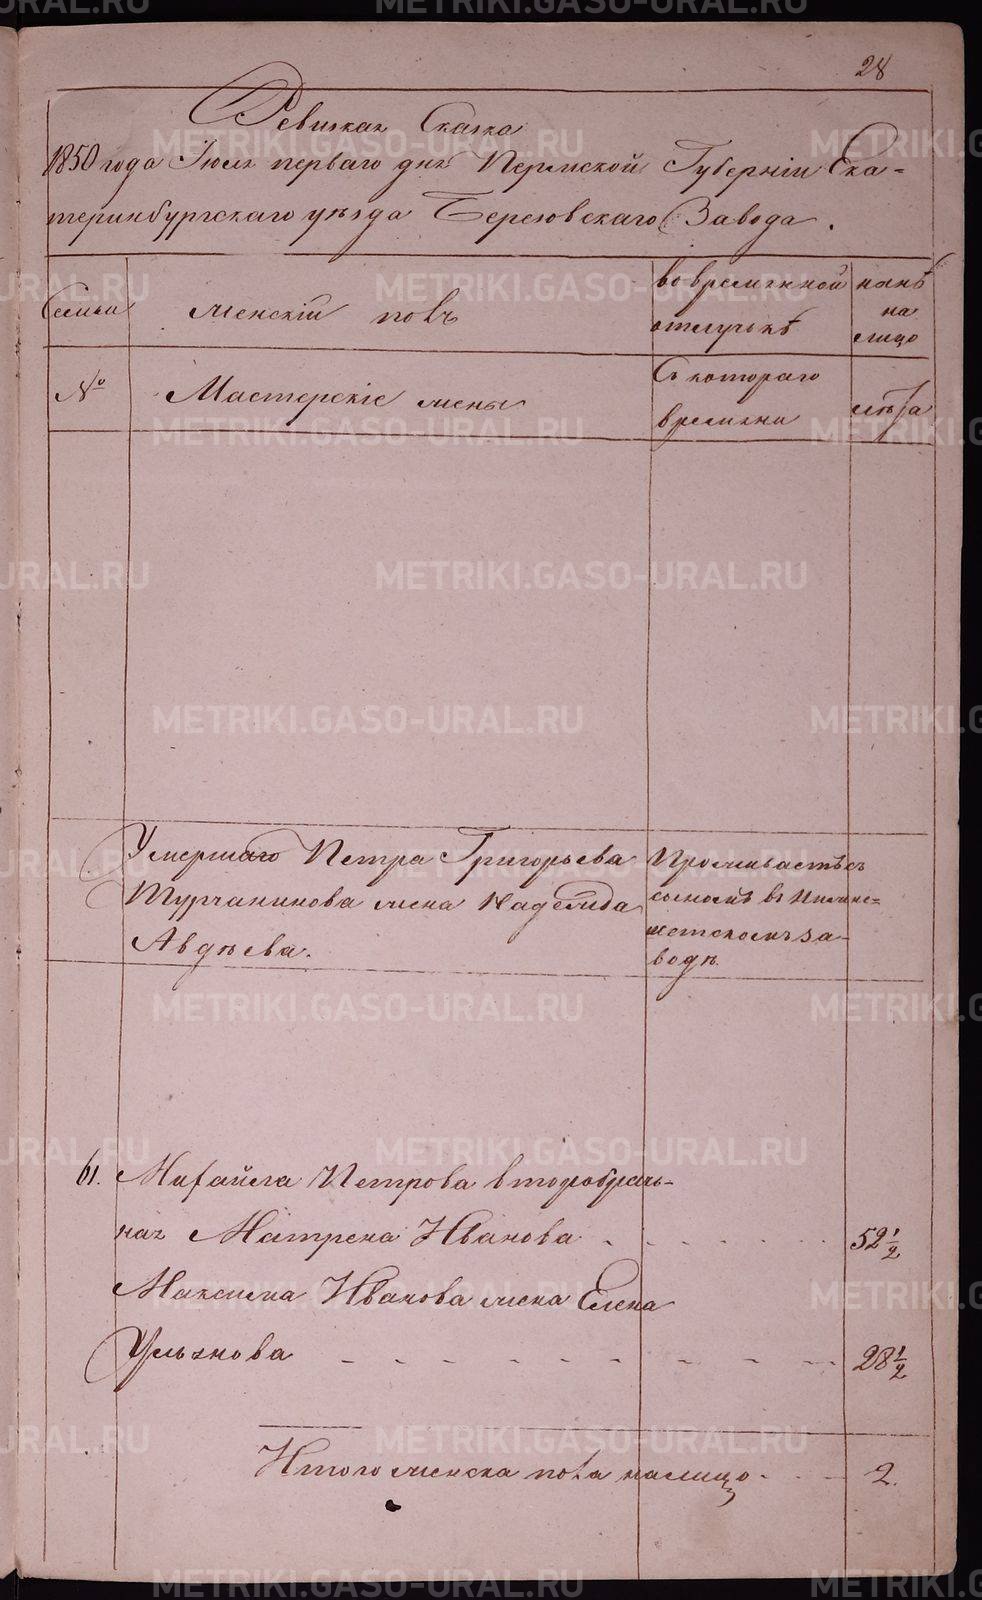 28
Ревизская Сказка
1850 года Июля перваго дня Пермской Губерніи Ека-
теринбургскаго уѣзда Березовскаго Завода.
Семьи
женскій полъ
во временной
отлучкѣ
нынѣ
на
лицо
№
Мастерскіе жены
Съ котораго
времени
лѣта
Умершаго Петра Григорьева
Турчанинова жена Надежда
Авдѣева.
Проживаетъ съ
сыномъ въ
заводѣ
61. Михайла Петрова второбрач-
ная Матрена Иванова 52 1/2
Максима Иванова жена Елена
Ульянова 28 1/2
Итого женска пола налицо 2.
METRIKI.GASO-URAL.RU